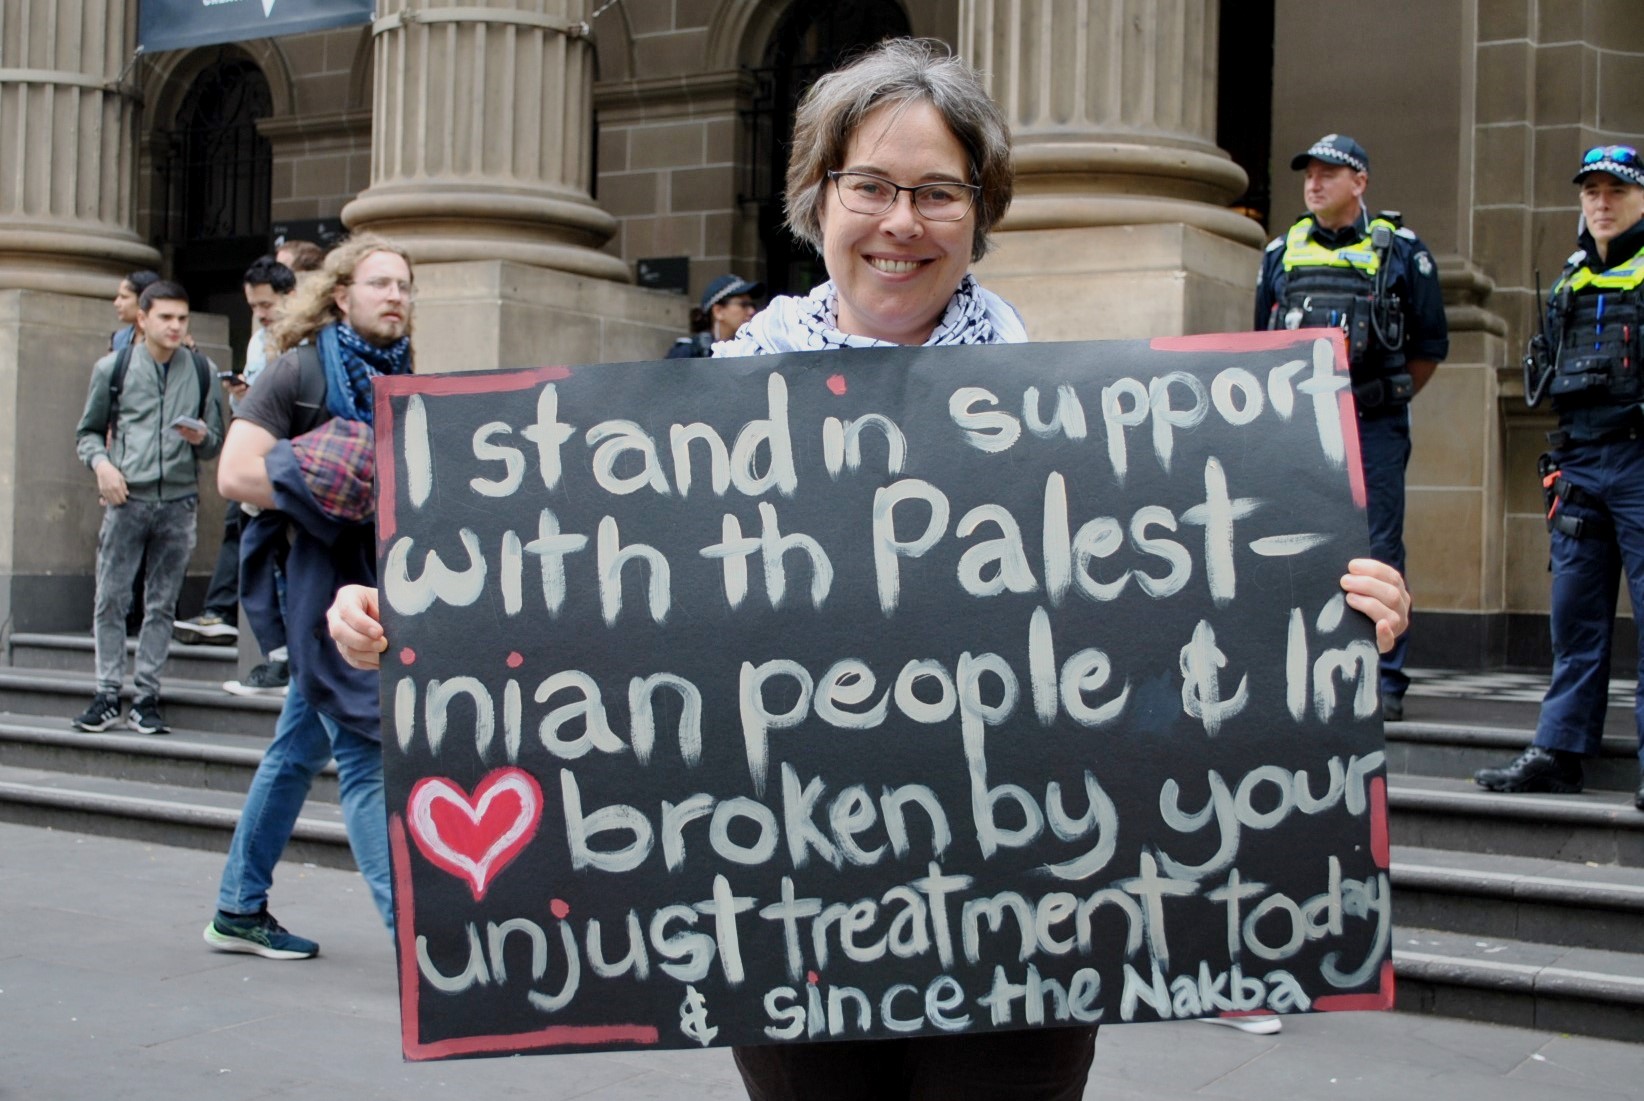 I stand in support
with th Palest-
inian people & I'm
❤ broken by your
unjust treatment today
& since the Nakba